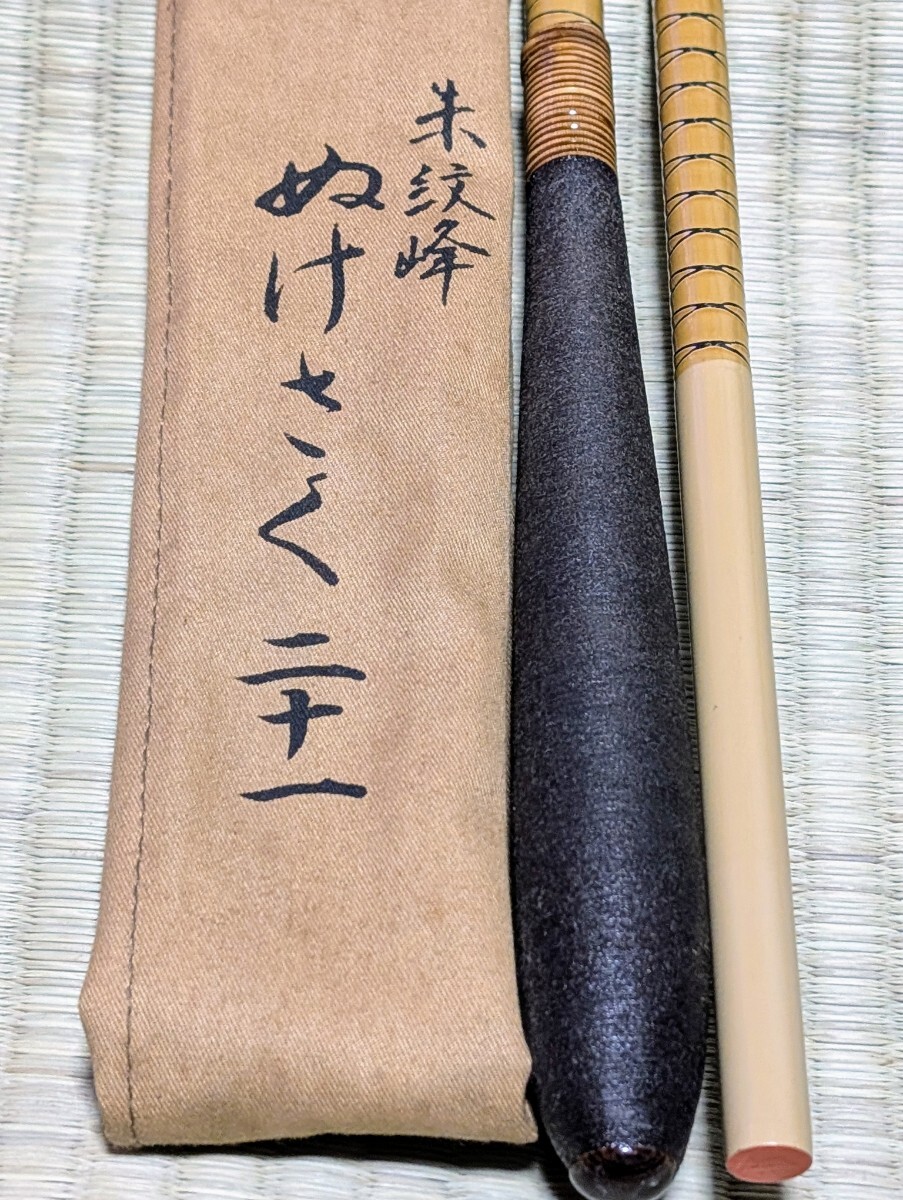 朱紋峰
ぬけさく 二十一